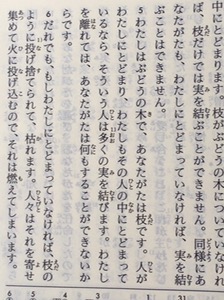 中とどまります。枝がぶどうの木についていなけれ
ば、枝だけでは実を結ぶことができません。同様にあ
なたがたも、わたしにとどまっていなければ、実を結
ぶことはできません。
5 わたしはぶどうの木で、あなたがたは枝です。人が
わたしにとどまり、わたしもその人の中にとどまって
いるなら、そういう人は多くの実を結びます。わたし
を離れては、あなたがたは何もすることができないか
らです。
6 だれでも、もしわたしにとどまっていなければ、枝の
ように投げ捨てられて、枯れます。人々はそれを寄せ
集めて火に投げ込むので、それは燃えてしまいます。
31